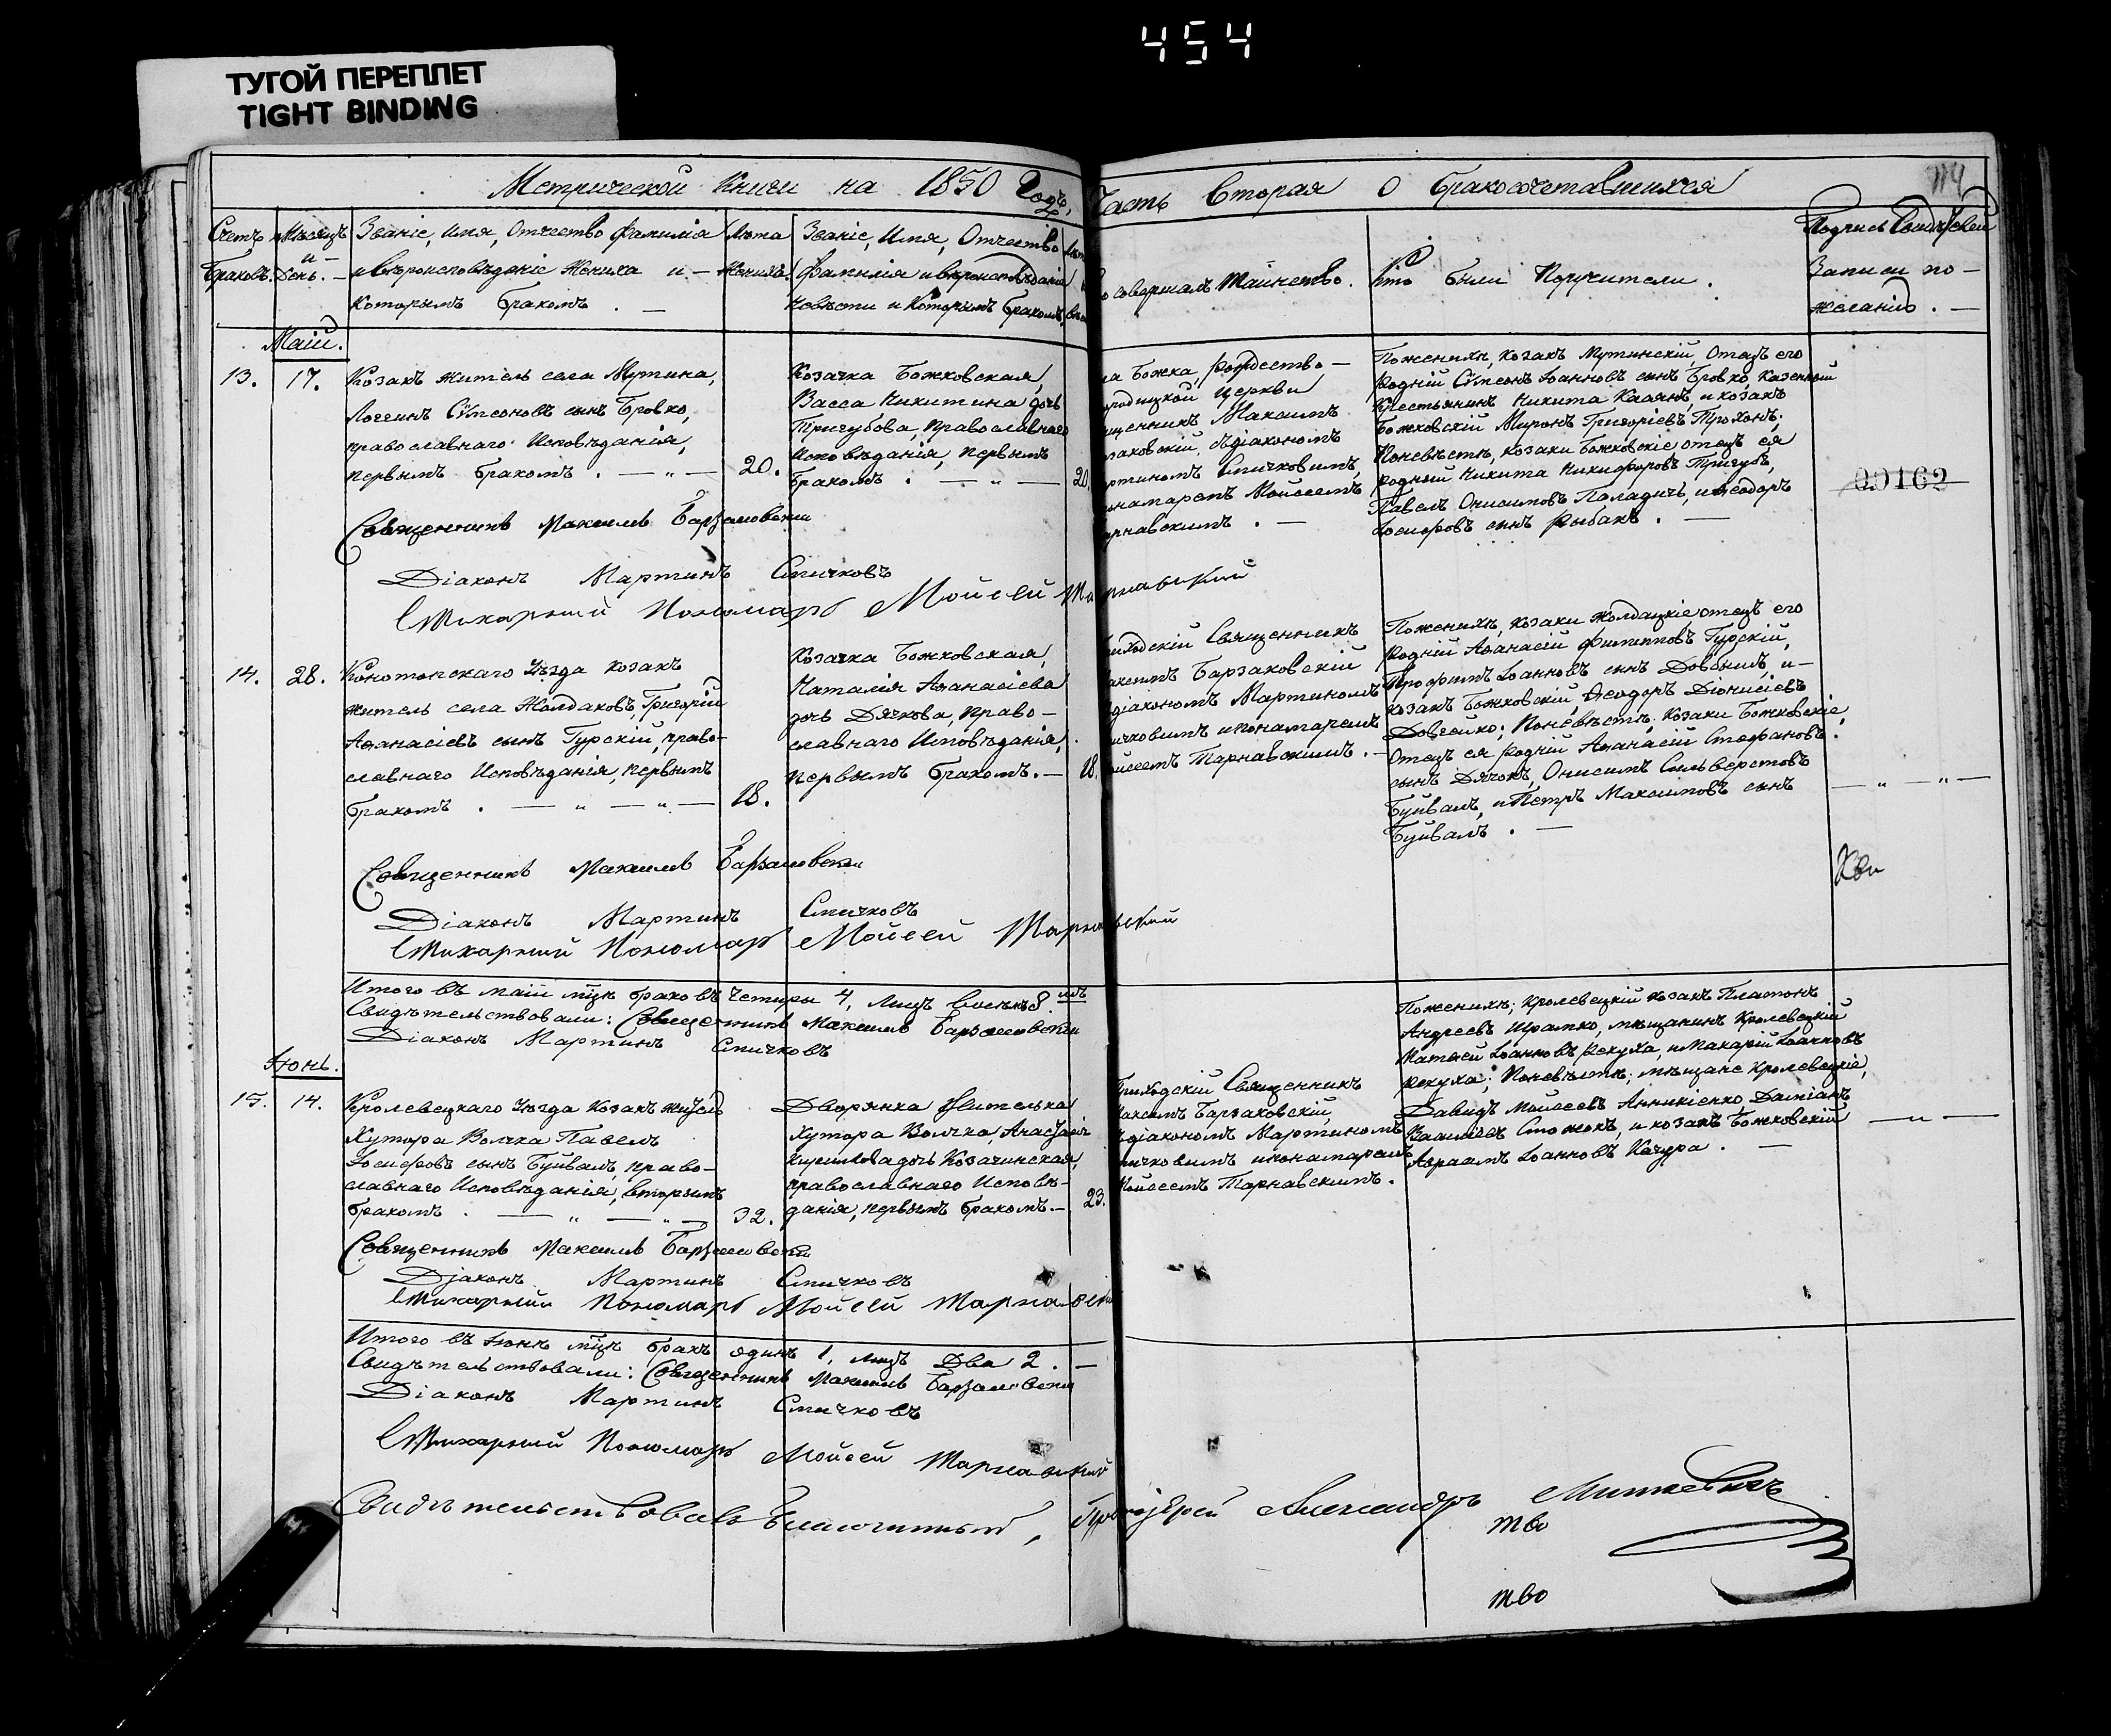 454
ТУГОЙ ПЕРЕПЛЕТ
TIGHT BINDING
Метрической Книги на 1850 Годъ,
Часть Вторая о бракосочетавшихся
114
Счетъ
Браковъ.
Мѣсяцъ
и
День. —
Званіе, Имя, Отчество фамилія
и вѣроисповѣданіе Жениха и —
которымъ бракомъ . —
Лѣта
Жениха.
Званіе, Имя, Отчество
фамилія и вѣроисповѣданіе
Невѣсти и Которымъ бракомъ,
совершалъ Таинство.
Кто были Поручители.
Подпись Свидѣтелей
Записи по —
желанію . —
Маій.
13.
17.
Козакъ житель села Мутина,
Логгинъ Сѵмеоновъ сынъ Бровко,
православнаго Исповѣданія,
первымъ бракомъ . — „ —
20.
Козачка Божковская,
Васса Никитина дочь
Тригубова, православнаго
Исповѣданія, первымъ
бракомъ . — „ —
20.
Божка, Рождество —
церкви
Максимъ
съ діакономъ
Спичковимъ,
Мойсеемъ
. —
Поженихѣ, козакъ Мутинскій, Отецъ его
родній Сѵмеонъ Іоанновъ сынъ Бровко, Казенный
Крестьянинъ Никита Касянъ, и козакъ
Божковскій Миронъ Григоріевъ Трохонъ;
Поневѣстѣ, козаки Божковскіе отецъ ея
родный Никита Никифоровъ Тригубъ,
Павелъ Онисимовъ Паладичъ, и Ѳеодоръ
Іосифовъ сынъ Рыбакъ . —
00162
Священникъ Максимъ Барзаковскій
Діаконъ Мартинъ Спичковъ
Стихарный Пономарь Мойсей Тарнавскій
14.
28.
Конотопскаго Уѣзда козакъ
житель села Жолдаковъ, Григорій
Аѳанасіевъ сынъ Гурскій, право-
славнаго Исповѣданія, первымъ
бракомъ . — „ — „ —
18.
Козачка Божковская,
Наталія Аѳанасіева
дочь Дячкова, право —
славнаго Исповѣданія,
первымъ бракомъ. —
18.
Священникъ
Барзаковскій
діакономъ Мартиномъ
и понамаремъ
Тарнавскимъ . —
Поженихѣ, козаки Жолдацкіе, отецъ его
родній Аѳанасій Филипповъ Гурскій,
Трофимъ Іоанновъ сынъ Довбышъ, и —
козакъ Божковскій, Ѳеодоръ Діонисіевъ
Довгейко; Поневѣстѣ: Козаки Божковскіе,
Отецъ ея родній Аѳанасій Стефановъ
сынъ Дячокъ, Онисимъ Сильверстовъ
Буйвалъ, и Петръ Максимовъ сынъ
Буйвалъ . —
— „ — „ —
Священникъ Максимъ Барзаковскій
Діаконъ Мартинъ Спичковъ
Стихарный Пономарь Мойсей Тарнавскій
Итого въ маіи мцѣ браковъ Четыри 4, Лицъ Восемь 8
Свидѣтельствовали: Священникъ Максимъ Барзаковскій
Діаконъ Мартинъ Спичковъ
Іюнь.
15.
14.
Кролевецкаго Уѣзда Козакъ житель
Хутора Волчка Павелъ
Іосифовъ сынъ Буйвалъ, право-
славнаго Исповѣданія, вторымъ
бракомъ . — „ — „ —
32.
Дворянка Жителька
Хутора Волчка, Анастасія
дочь Козачинская,
православнаго Исповѣ-
данія, первымъ бракомъ. —
23.
Приходскій Священникъ
Максимъ Барзаковскій,
съ діакономъ Мартиномъ
Спичковимъ и понамаремъ
Мойсеемъ Тарнавскимъ .
Поженихѣ; Кролевецкій козакъ Платонъ
Андреевъ Шрамко, мѣщанинъ Кролевецкій
Матѳей Іоанновъ Рекуха, и Макарій Іоанновъ
Рекуха; Поневѣстѣ; мѣщане Кролевецкіе,
Давидъ Мойсеевъ Анникіенко, Даміанъ
Василіевъ Стожокъ, и козакъ Божковскій
Авраамъ Іоанновъ Качура . —
— „ —
Священникъ Максимъ Барзаковскій
Діаконъ Мартинъ Спичковъ
Стихарный Пономарь Мойсей Тарнавскій
Итого въ Іюнѣ мцѣ бракъ одинъ 1, лицъ Два 2 . —
Свидѣтельствовали: Священникъ Максимъ Барзаковскій
Діаконъ Мартинъ Спичковъ
Стихарный Пономарь Мойсей Тарнавскій
Свидѣтельствовалъ Благочинный, Протоіерей Александръ Миткевичъ